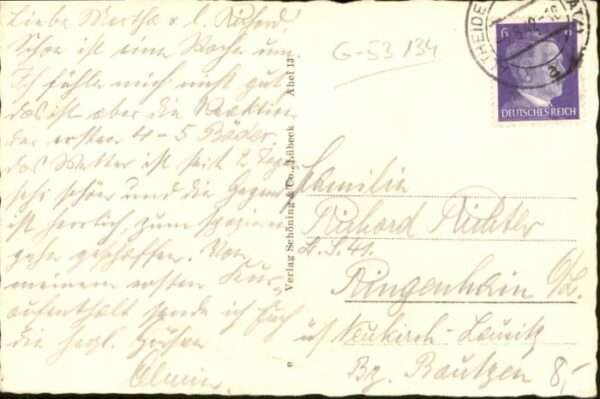 Liebe Martha u. l. Richard!
Schon ist eine Woche um.
Ich fühle mich nicht gut
das ist aber die Reaktion
der ersten 4-5 Bäder,
das Wetter ist seit 2 Tage
sehr schön und die Gegend
ist herrlich, zum spazieren
gehn geschaffen. Von
meinem ersten Kur-
aufenthalt sende ich Euch
die herzl. Grüße
G-53 134
Verlag Schöning & Co., Lübeck Ahei 13
HEIDE
6 6
DEUTSCHES REICH
Familie
Richard Richter
Ringenhain O/L.
Neukirch-Lausitz
Bz. Bautzen 8,-